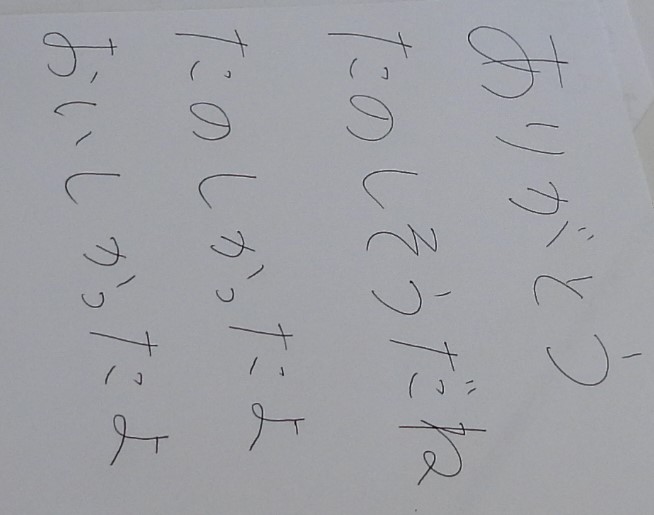 ありがとう
たのしそうだね
たのしかったよ
おいしかったよ